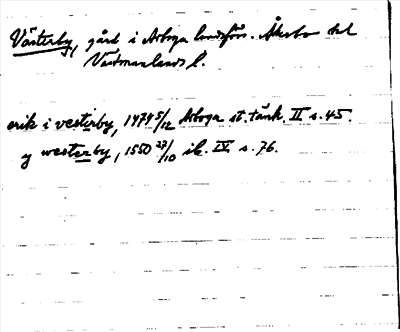 Västerby, gård i Arboga landsförs. Åkerbo del
Västmanlands l.
erik i vesterby, 1474 5/12 Arboga st. tänk. II s. 45.
y westerby, 1550 27/10 ib. IV s. 76.